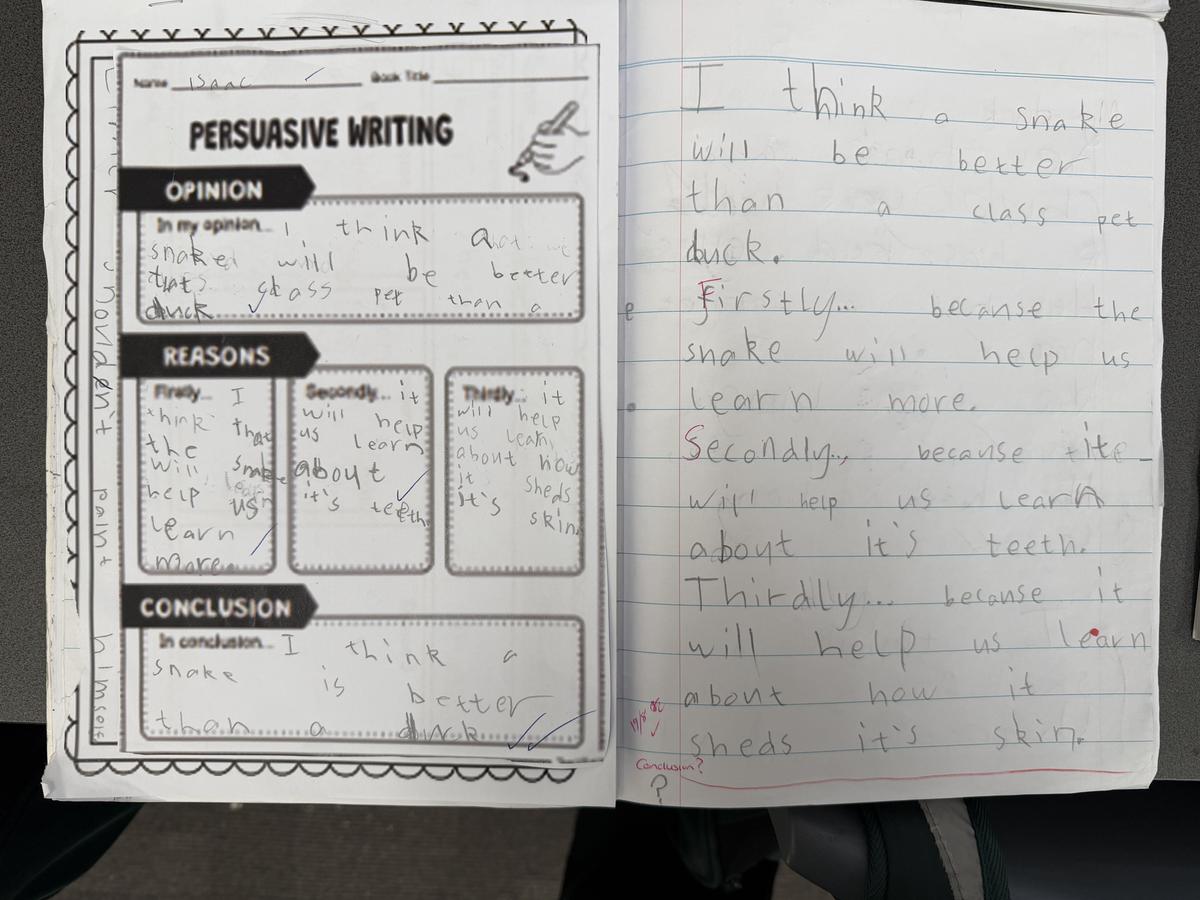 Name Isaac Book Title
PERSUASIVE WRITING
OPINION
In my opinion... I think a
snake will be better
class pet than a
duck
REASONS
Firstly... I
think that
the
will snake
help us
learn
more.
Secondly... it
will help
us learn
about
it's teeth.
Thirdly... it
will help
us learn
about how
it sheds
it's skin.
CONCLUSION
In conclusion... I think a
snake is better
than a duck
pain't himself
I think a snake
will be better
than a class pet
duck.
Firstly... because the
snake will help us
learn more.
Secondly... because it
will help us learn
about it's teeth.
Thirdly... because it
will help us learn
about how it
sheds it's skin.
Conclusion?
?